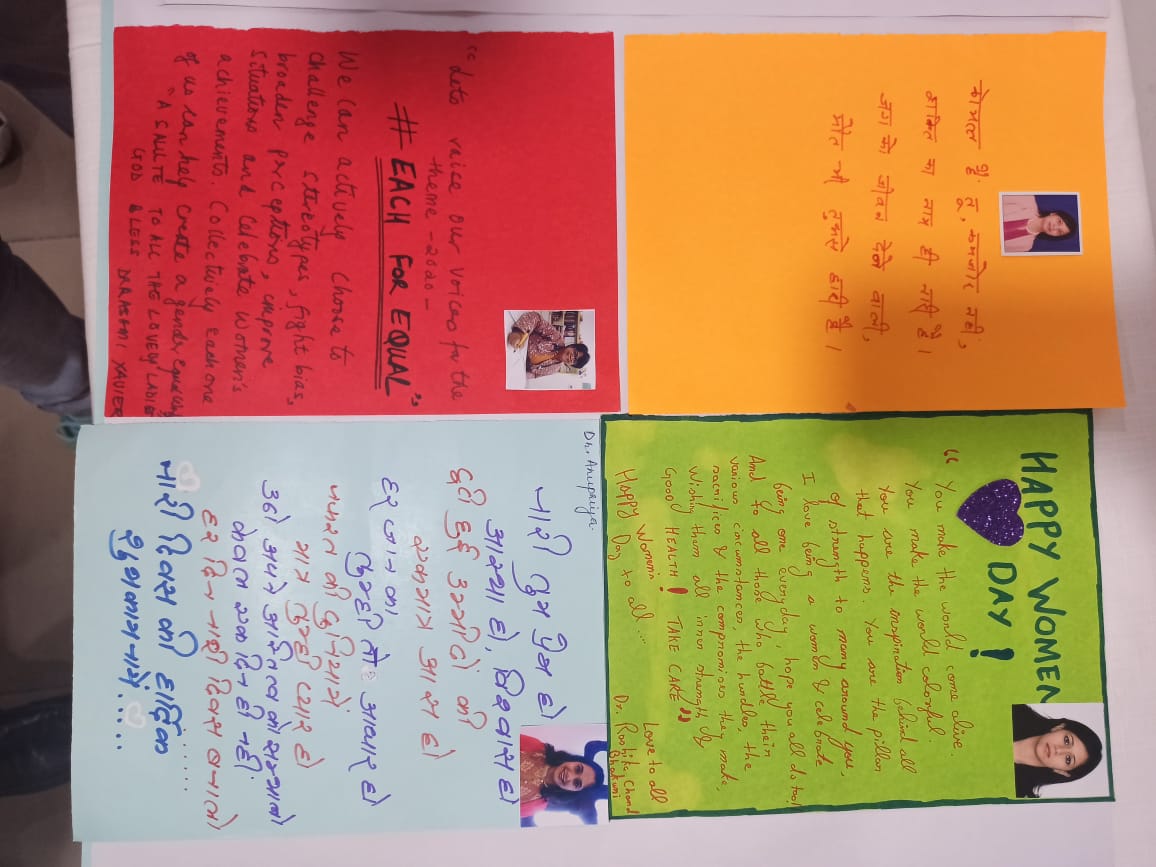 कोमल है तू, कमजोर नहीं,
शक्ति का नाम ही नारी है।
जग को जीवन देने वाली,
मौत भी तुमसे हारी है।
HAPPY WOMEN
DAY !
“ You make the world come alive.
You make the world colorful.
You are the inspiration behind all
that happens. You are the pillar
of strength to many around you,
I love being a women & celebrate
being one everyday, hope you all do too!
And to all those who battle their
various circumstances, the hurdles, the
sacrifices & the compromises they make,
Wishing them all inner strength &
Good HEALTH ! TAKE CARE ”
Love to all
Happy Women's
Day to all ...
Dr. Roshika Chand
Bhakuni
“ Lets raise our voices for the
theme - 2020 -
# EACH FOR EQUAL ”
We can actively choose to
challenge stereotypes, fight bias,
broaden perceptions, improve
situations and celebrate women's
achievements. Collectively each one
of us can help create a gender equal
"A SALUTE TO ALL THE LOVELY LADIES
GOD BLESS DR RASHMI XAVIER
Dr. Anupriya.
नारी तुम प्रेम हो
आस्था हो, विश्वास हो
टूटी हुई उम्मीदों की
एकमात्र आस हो
हर जान का
तुम्हीं तो आधार हो
नफरत की दुनिया में
मात्र तुम्हीं प्यार हो
उठो अपने अस्तित्व को सम्भालो
केवल एक दिन ही नहीं
हर दिन नारी दिवस बनालो
नारी दिवस की हार्दिक
शुभकामनायें.....